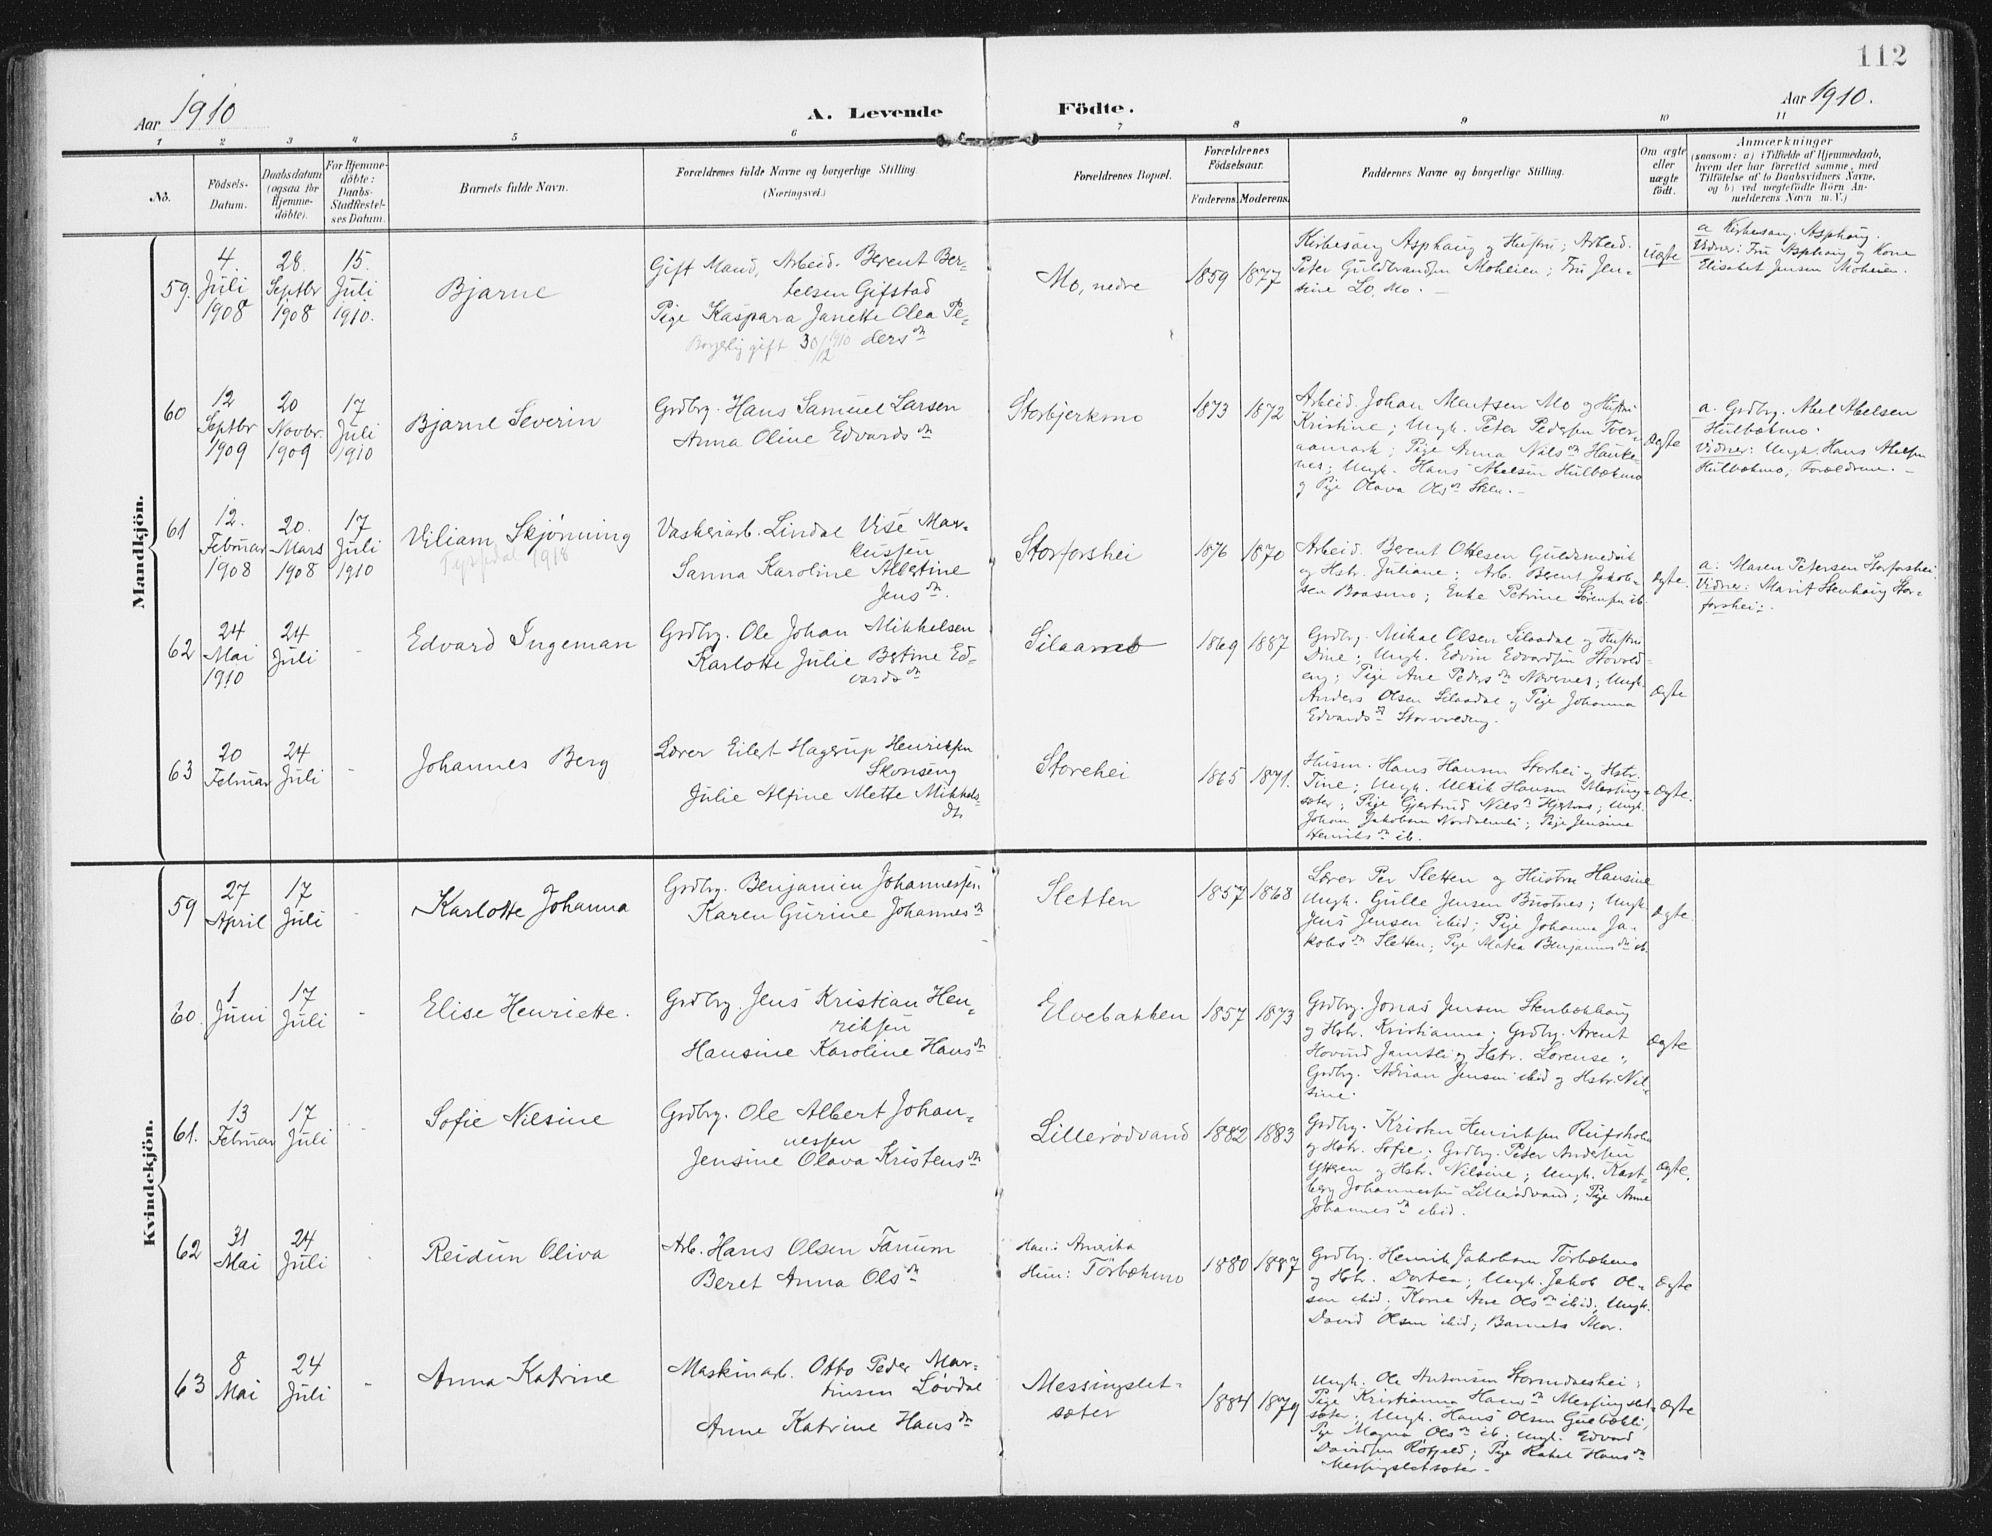 112
Aar 1910
A. Levende Födte.
Aar 1910.
1 2 3 4 5 6 7 8 9 10 11
No.
Födsels-Datum.
Daabsdatum (ogsaa for Hjemme-döbte).
For Hjemme-döbte: Daabs-Stadfæstel-ses Datum.
Barnets fulde Navn.
Forældrenes fulde Navne og borgerlige Stilling.
(Næringsvei.)
Forældrenes Bopæl.
Forældrenes Födselsaar.
Faderens. Moderens.
Faddernes Navne og borgerlige Stilling.
Om ægte eller uægte födt.
Anmærkninger
(saasom: a) i Tilfælde af Hjemmedaab,
hvem der har forrettet samme, med
Tilföielse af to Daabsvidners Navne,
og b) ved uægtefödte Börn An-
melderens Navn m. V.)
Mandkjön.
59. 4 Juli 1908
28. Septbr 1908
15. Juli 1910.
Bjarne
Gift Mand, Arbeid. Berent Ber-
telsen Gifstad
Pige Kaspara Janette Olea Pe-
ders dtr
Borgerlig gift 30/12 1910
Mo, nedre
1859 1877
Kirkesang. Asphaug og Hustru; Arbeid.
Peter Guldbrandsen Moheien; Fru Jen-
sine Lo, Mo. -
Uægte
a Kirkesang. Asphaug.
Vidner: Fru Asphaug og Kone
Elisabet Jensen Moheien.
60 12 Septbr 1909
20 Novbr. 1909
17 Juli 1910
Bjarne Severin
Grdbr. Hans Samuel Larsen
Anna Oline Edvards dtr
Storbjerkmo
1873 1872
Arbeid. Johan Mentzen Mo og Hustru
Kristine; Ungk. Peter Pedersen Tver-
aamark; Pige Anna Nils dtr Hauke-
nes; Ungk. Hans Abelsen Hulbækmo
og Pige Olava Ols dtr Sten. -
Ægte
a. Grdbr. Abel Abelsen
Hulbækmo.
Vidner: Ungk. Hans Abelsen
Hulbækmo, Forældrene. -
61 12. Februar 1908
20. Mars 1908
17 Juli 1910
Viliam Skjønning
Tyssedal 1918
Vaskeriarb. Lindal Vise Mar-
kussen
Sanna Karoline Albertine
Jens dtr.
Storforshei
1876 1870
Arbeid. Berent Ottesen Guldsmedvik
og Hstr. Juliane; Arb. Berent Jakob-
sen Baasmo; Enke Petrine Sørensen ib.
Ægte.
a: Maren Petersen Storforshei.
Vidner: Marit Stenhaug Stor-
forshei.
62 24 Mai 1910
24 Juli
-
Edvard Ingeman
Grdbr. Ole Johan Mikkelsen
Karlotte Julie Betine Ed-
vards dtr
Silaamo
1869 1887
Grdbr. Mikal Olsen Silaadal og Hustru
Dine; Ungk. Edvin Edvardsen Storvold-
eng; Pige Ane Peders dtr Nævernes; Ungk.
Anders Olsen Silaadal og Pige Johanna
Edvards dtr Storvoldeng.
Ægte
63 20 Februar
24 Juli
-
Johannes Berg
Lærer Eilert Hagerup Henriksen
Skonseng
Julie Alfine Mette Mikkels-
dtr
Storehei
1865 1871.
Husm. Hans Hansen Storhei og Hstr.
Tine; Ungk. Ulrik Hansen Messing-
sæter; Pige Gjertrud Nils dtr; Ungk.
Johan Jakobsen; Pige Jensine
Henriks dtr ib.
Ægte.
Kvindekjön.
59 27 April
17 Juli
-
Karlotte Johanna
Grdbr. Benjamin Johannessen
Karen Gurine Johannes dtr
Sletten
1857 1868
Lærer Per Sletten og Hustru Hansine
Ungk. Gulle Jensen Bustnes; Ungk.
Jens Jensen ibid; Pige Johanna Ja-
kobs dtr Sletten; Pige Matea Benjamins dtr ib.
Ægte.
60. 1 Juni
17 Juli
-
Elise Henriette.
Grdbr. Jens Kristian Hen-
riksen
Hansine Karoline Hans dtr
Elvebakken
1857 1873
Grdbr. Jonas Jensen Stenbækhaug
og Hstr. Kristianna; Grdbr. Arent
Hovind Jamtli og Hstr. Lorense;
Grdbr. Adrian Jensen ibid og Hstr. Nil-
sine.
Ægte
61. 13 Februar
17 Juli
-
Sofie Nilsine
Grdbr. Ole Albert Johan-
nessen
Jensine Olava Kristens dtr
Lillerødvand
1882 1883
Grdbr. Kristen Henriksen Rufsholm
og Hstr. Sofie; Grdbr. Peter Andersen
Ytteren og Hstr. Nilsine; Ungk. Karl-
berg Johannessen Lillerødvand; Pige Anne
Johannes dtr ibid.
Ægte.
62 31 Mai
24 Juli
-
Reidun Oliva
Arb. Hans Olsen Fanum
Beret Anna Ols dtr
Han: Amerika
Hun: Törbækmo
1880 1887
Grdbr. Henrik Jakobsen Törbækmo
og Hstr. Dortea; Ungk. Jakob Ol-
sen ibid; Kone Ane Ols dtr ibid; Ungk.
David Olsen ibid; Barnets Mor.
Ægte
63 8 Mai
24 Juli
-
Anna Katrine
Maskinarb. Otto Peder Mar-
tinsen Løvdal
Anne Katrine Hans dtr
Messingslet-
sæter
1884 1879
Ungk. Ole Antonsen Stormdalshei;
Pige Kristianna Hans dtr Messingslet-
sæter; Ungk. Hans Olsen Gulbækli,
Pige Magna Ols dtr ib; Ungk. Edvard
Davidsen Røsfjeld; Pige Rakel Hans dtr
Messingsletsæter. -
Ægte